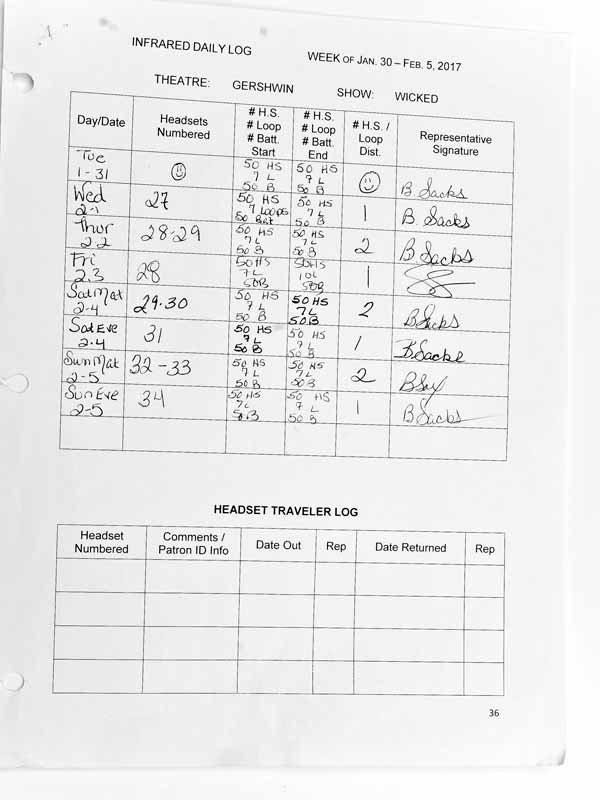 INFRARED DAILY LOG
WEEK OF JAN. 30 – FEB. 5, 2017
THEATRE: GERSHWIN SHOW: WICKED
Day/Date
Headsets
Numbered
# H.S.
# Loop
# Batt.
Start
# H.S.
# Loop
# Batt.
End
# H.S. /
Loop
Dist.
Representative
Signature
Tue
1-31
50 HS
7 L
50 B
50 HS
7 L
50 B
B Sacks
Wed
2-1
27
50 HS
7 Loops
50 Bat
50 HS
7 L
50 B
1
B. Sacks
Thur
2-2
28-29
50 HS
7 L
50 B
50 HS
7 L
50 B
2
B Sacks
Fri
2.3
28
50 HS
7 L
50B
50HS
10L
50B
1
Sat Mat
2-4
29-30
50 HS
7 L
50 B
50 HS
7 L
50 B
2
B Sacks
Sat Eve
2-4
31
50 HS
7 L
50 B
50 HS
7 L
50 B
1
B Sacks
Sun Mat
2-5
32-33
50 HS
7 L
50 B
50 HS
7 L
50 B
2
Sun Eve
2-5
34
50 HS
7 L
50 B
50 HS
7 L
50 B
1
B Sacks
HEADSET TRAVELER LOG
Headset
Numbered
Comments /
Patron ID Info
Date Out
Rep
Date Returned
Rep
36